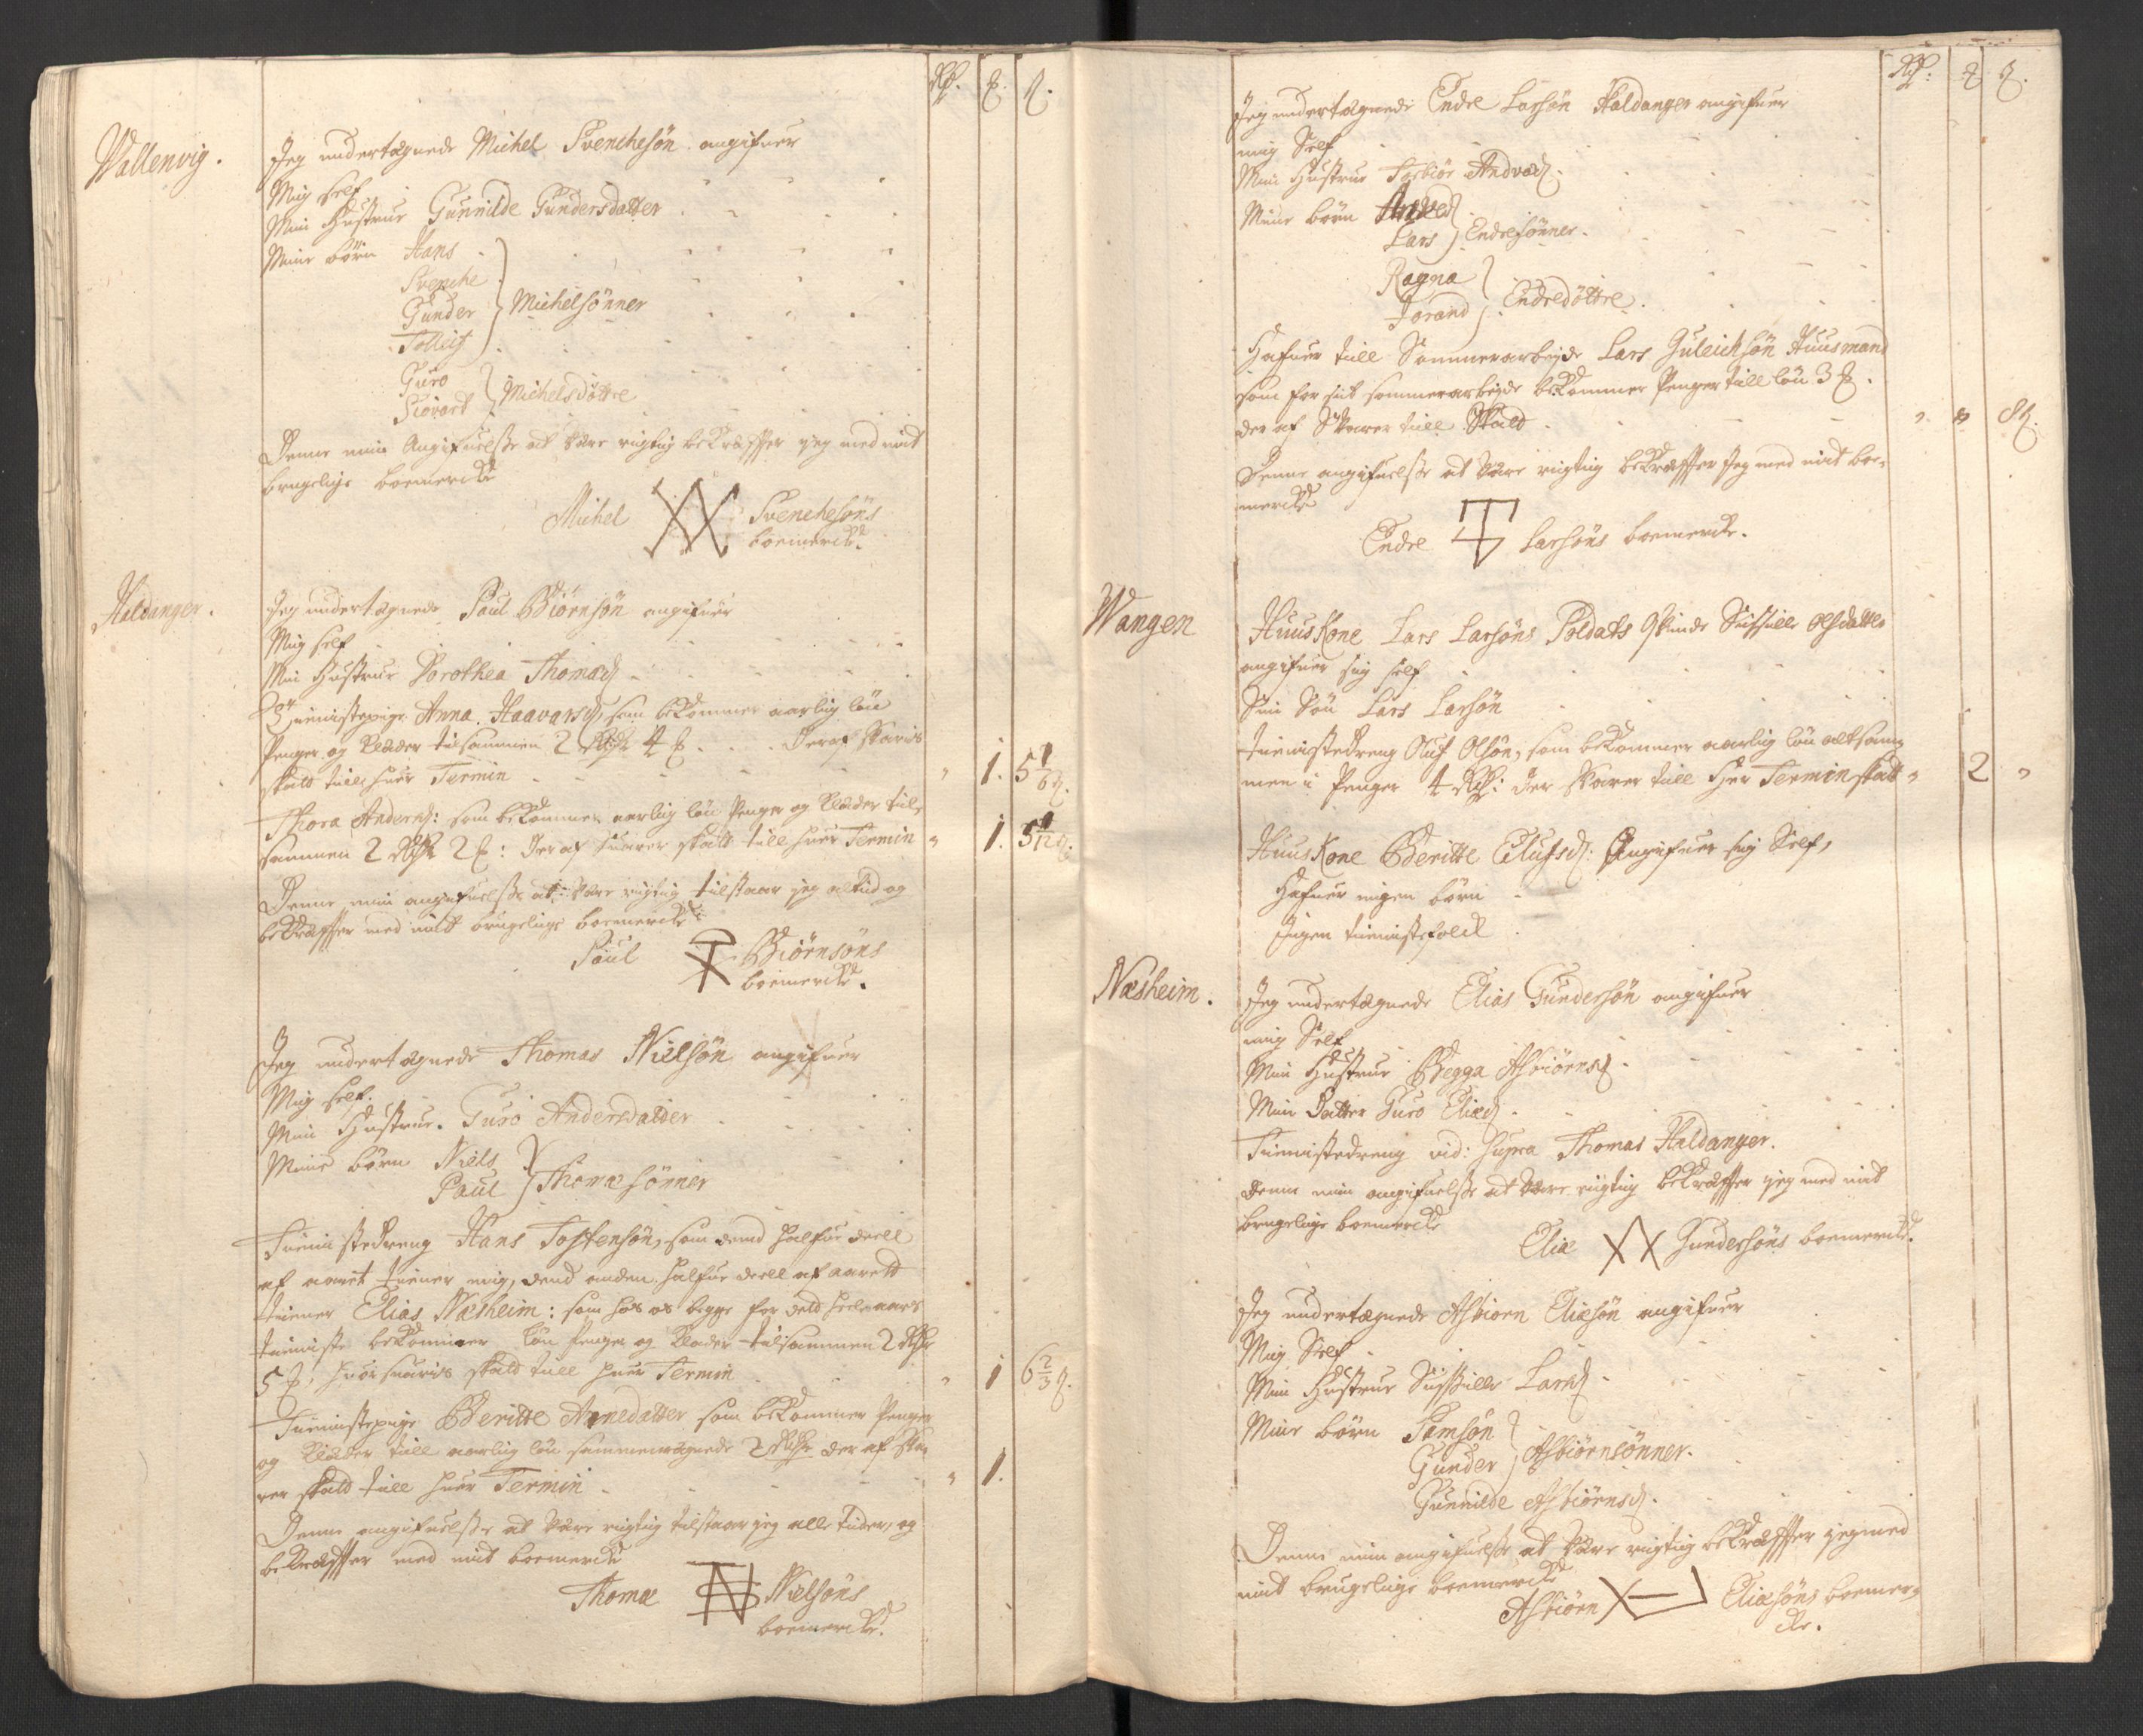 Rdr. ₰. ß.
Wallenvig.
Jeg undertegnede Michel Svenchesön angifuer
Mig self
Min Hustrue Gunnilde Gundersdatter
Mine börn Hans
Svenche
Gunder } Michelsönner
Tolleif
Guro
Siovart } Michelsdöttre
Denne min Angifuelsse at være rigtig bekræffter jeg med mit
brugelige boemercke
Michel Svenchesöns
boemercke.
Haldanger.
Jeg undertegnede Paul Biörnsön angifuer
Mig self
Min Hustrue Dorothea Thomasd.
Tienistepige Anna Haavarsd, som bekommer aarlig lön
Penger og Klæder tilsammen 2 Rdr 4 ₰. Deraf svaris
skatt till huer Termin " 1. 5 1/6 ß.
Thora Andersd: som bekommer aarlig lön Penger og Klæder til-
sammen 2 Rdr 2 ₰: Deraf suarer skatt till huer Termin " 1. 5 1/12 ß.
Denne min angifuelsse at være rigtig tilstaar jeg altid og
bekræffter med mit brugelige boemercke
Paul Biörnsöns
boemercke.
Jeg undertegnede Thomas Nielsön angifuer
Mig self.
Min Hustrue. Guro Andersdatter
Mine börn Niels
Paul } Thomæsönner
Tienistedreng Hans Tostensön, som dend halfue deell
af aaret tiener mig, dend anden halfue deell af aarett
tiener Elias Næsheim: som hos os begge for deld heele aars
tieniste bekommer lön Penge og Klæder tilsammen 2 Rdr
5 ₰, huorsuaris skatt till huer Termin " 1 6 2/3 ß.
Tienistepige Beritte Arnedatter som bekommer Penger
og Klæder till aarlig lön sammenregnede 2 Rdr der af sva-
rer skatt till huer Termin " 1.
Denne angifuelsse at være rigtig tilstaar jeg alle tider, og
bekræffter med mit boemercke
Thomæ Nielsöns
boemercke.
Rdr: ₰ ß.
Jeg undertegnede Endre Larsön Haldanger angifuer
mig Self
Min Hustrue Torbiör Andvæd.
Mine börn
Lars } Endresönner.
Ragna
Jorand } Endredöttre.
Hafuer till Sommerarbeyde Lars Guleichsön Huusmand
som for sit sommerarbeyde bekommer Penger till lön 3 ₰.
der af Svarer till Skatt " " 8 ß.
Denne angifuelsse at være rigtig bekræffter Jeg med mit boe-
mercke
Endre Larsöns boemercke.
Wangen
Huus Kone Lars Larsöns Soldats Qvinde Sissille Olsdatter
angifuer sig self
Sin Sön Lars Larsön
tienistedreng Oluf Olsön, som bekommer aarlig lön altsam-
men i Penger 4 Rdr: der svarer till huer Termin skatt " 2 "
Huus Kone Beritte Olufsd: Angifuer sig Self,
Hafuer ingen börn
Ingen tienistefolck
Næsheim.
Jeg undertegnede Elias Gundersön angifuer
mig Self
Min Hustrue Begga Asbiörnsd
Min Datter Guro Eliæd.
Tienistedreng vid: supra Thomas Haldanger.
Denne min angifuelsse at være rigtig bekræffter jeg med mit
brugelige boemercke
Eliæ Gundersöns boemercke.
Jeg undertegnede Asbiorn Eliæsön angifuer
Mig Self
Min Hustrue Sissille Larsd
Mine börn Samsön
Gunder } Asbiörnsönner.
Gunnilde Asbiörnsd.
Denne min angifuelsse at være rigtig bekræffter jeg med
mit brugelige boemercke
Asbiörn Eliæsöns boemer-
cke.